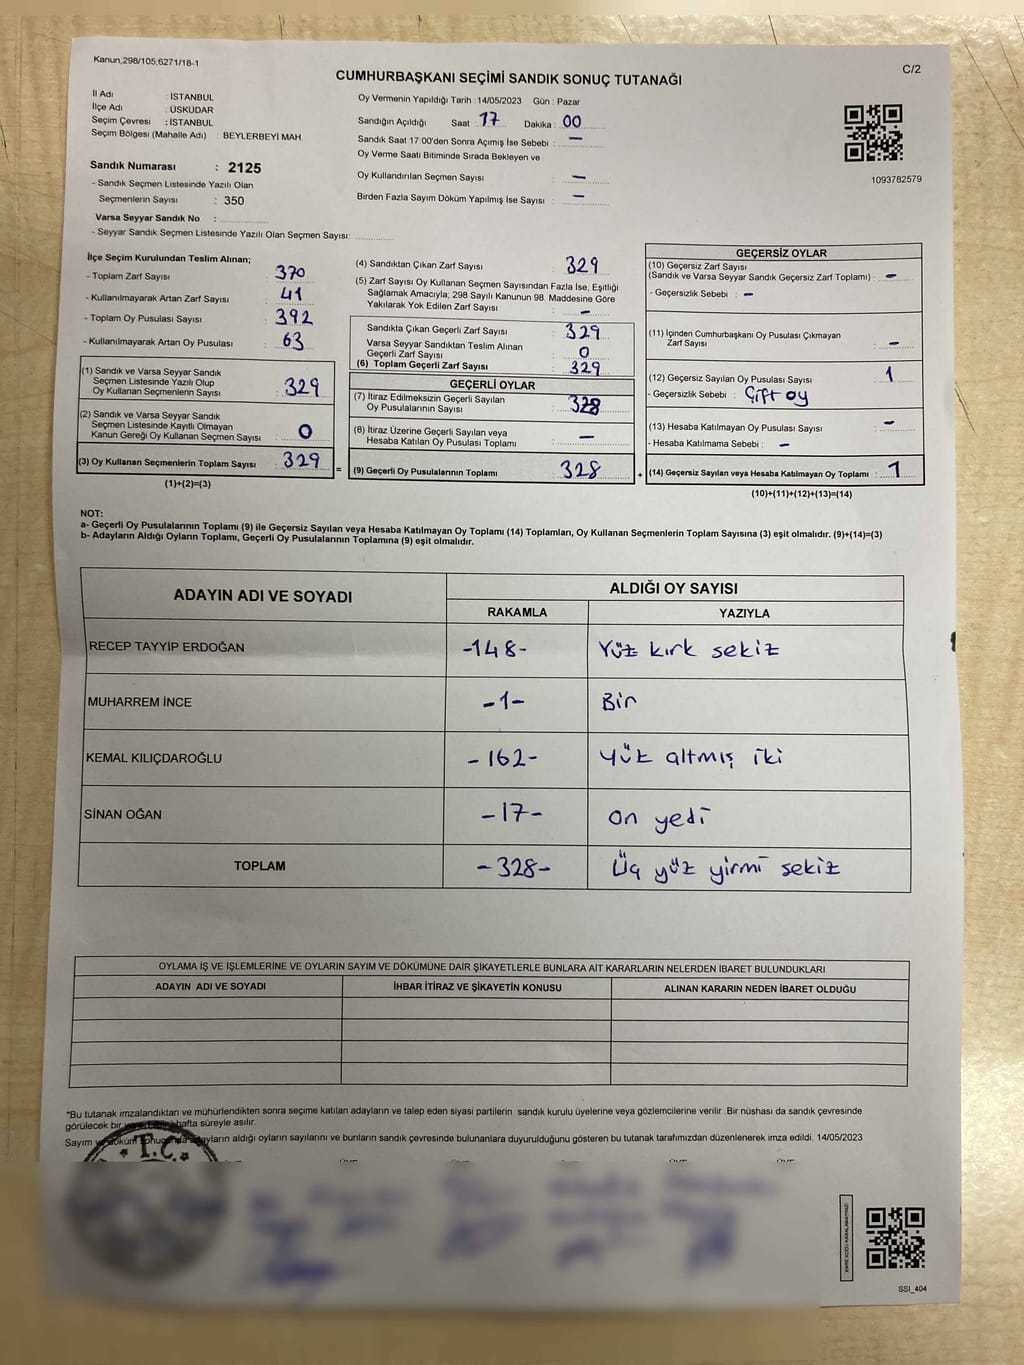 Kanun,298/105,6271/18-1
C/2
CUMHURBAŞKANI SEÇİMİ SANDIK SONUÇ TUTANAĞI
İl Adı : İSTANBUL
İlçe Adı : ÜSKÜDAR
Seçim Çevresi : İSTANBUL
Seçim Bölgesi (Mahalle Adı) : BEYLERBEYİ MAH
Sandık Numarası : 2125
- Sandık Seçmen Listesinde Yazılı Olan
Seçmenlerin Sayısı : 350
Varsa Seyyar Sandık No :
- Seyyar Sandık Seçmen Listesinde Yazılı Olan Seçmen Sayısı:
Oy Vermenin Yapıldığı Tarih : 14/05/2023 Gün : Pazar
Sandığın Açıldığı Saat : 17 Dakika : 00
Sandık Saat 17:00'den Sonra Açımış İse Sebebi : -
Oy Verme Saati Bitiminde Sırada Bekleyen ve
Oy Kullandırılan Seçmen Sayısı : -
Birden Fazla Sayım Döküm Yapılmış İse Sayısı : -
1093782579
İlçe Seçim Kurulundan Teslim Alınan;
- Toplam Zarf Sayısı : 370
- Kullanılmayarak Artan Zarf Sayısı : 41
- Toplam Oy Pusulası Sayısı : 392
- Kullanılmayarak Artan Oy Pusulası : 63
(1) Sandık ve Varsa Seyyar Sandık
Seçmen Listesinde Yazılı Olup
Oy Kullanan Seçmenlerin Sayısı : 329
(2) Sandık ve Varsa Seyyar Sandık
Seçmen Listesinde Kayıtlı Olmayan
Kanun Gereği Oy Kullanan Seçmen Sayısı : 0
(3) Oy Kullanan Seçmenlerin Toplam Sayısı : 329
(1)+(2)=(3)
=
(4) Sandıktan Çıkan Zarf Sayısı : 329
(5) Zarf Sayısı Oy Kullanan Seçmen Sayısından Fazla İse, Eşitliği
Sağlamak Amacıyla, 298 Sayılı Kanunun 98. Maddesine Göre
Yakılarak Yok Edilen Zarf Sayısı : -
Sandıkta Çıkan Geçerli Zarf Sayısı : 329
Varsa Seyyar Sandıktan Teslim Alınan
Geçerli Zarf Sayısı : 0
(6) Toplam Geçerli Zarf Sayısı : 329
GEÇERLİ OYLAR
(7) İtiraz Edilmeksizin Geçerli Sayılan
Oy Pusulalarının Sayısı : 328
(8) İtiraz Üzerine Geçerli Sayılan veya
Hesaba Katılan Oy Pusulası Toplamı : -
(9) Geçerli Oy Pusulalarının Toplamı : 328
+
GEÇERSİZ OYLAR
(10) Geçersiz Zarf Sayısı
(Sandık ve Varsa Seyyar Sandık Geçersiz Zarf Toplamı) : -
- Geçersizlik Sebebi : -
(11) İçinden Cumhurbaşkanı Oy Pusulası Çıkmayan
Zarf Sayısı : -
(12) Geçersiz Sayılan Oy Pusulası Sayısı : 1
- Geçersizlik Sebebi : Çift oy
(13) Hesaba Katılmayan Oy Pusulası Sayısı : -
- Hesaba Katılmama Sebebi : -
(14) Geçersiz Sayılan veya Hesaba Katılmayan Oy Toplamı : 1
(10)+(11)+(12)+(13)=(14)
NOT:
a- Geçerli Oy Pusulalarının Toplamı (9) ile Geçersiz Sayılan veya Hesaba Katılmayan Oy Toplamı (14) Toplamları, Oy Kullanan Seçmenlerin Toplam Sayısına (3) eşit olmalıdır. (9)+(14)=(3)
b- Adayların Aldığı Oyların Toplamı, Geçerli Oy Pusulalarının Toplamına (9) eşit olmalıdır.
ADAYIN ADI VE SOYADI ALDIĞI OY SAYISI
RAKAMLA YAZIYLA
RECEP TAYYİP ERDOĞAN -148- Yüz kırk sekiz
MUHARREM İNCE -1- Bir
KEMAL KILIÇDAROĞLU -162- Yüz altmış iki
SİNAN OĞAN -17- On yedi
TOPLAM -328- Üç yüz yirmi sekiz
OYLAMA İŞ VE İŞLEMLERİNE VE OYLARIN SAYIM VE DÖKÜMÜNE DAİR ŞİKAYETLERLE BUNLARA AİT KARARLARIN NELERDEN İBARET BULUNDUKLARI
ADAYIN ADI VE SOYADI İHBAR İTİRAZ VE ŞİKAYETİN KONUSU ALINAN KARARIN NEDEN İBARET OLDUĞU
*Bu tutanak imzalandıktan ve mühürlendikten sonra seçime katılan adayların ve talep eden siyasi partilerin sandık kurulu üyelerine veya gözlemcilerine verilir .Bir nüshası da sandık çevresinde
görülecek bir hafta süreyle asılır.
Sayım aldığı oyların sayılarını ve bunların sandık çevresinde bulunanlara duyurulduğunu gösteren bu tutanak tarafımızdan düzenlenerek imza edildi. 14/05/2023
T.C.
SSI_404